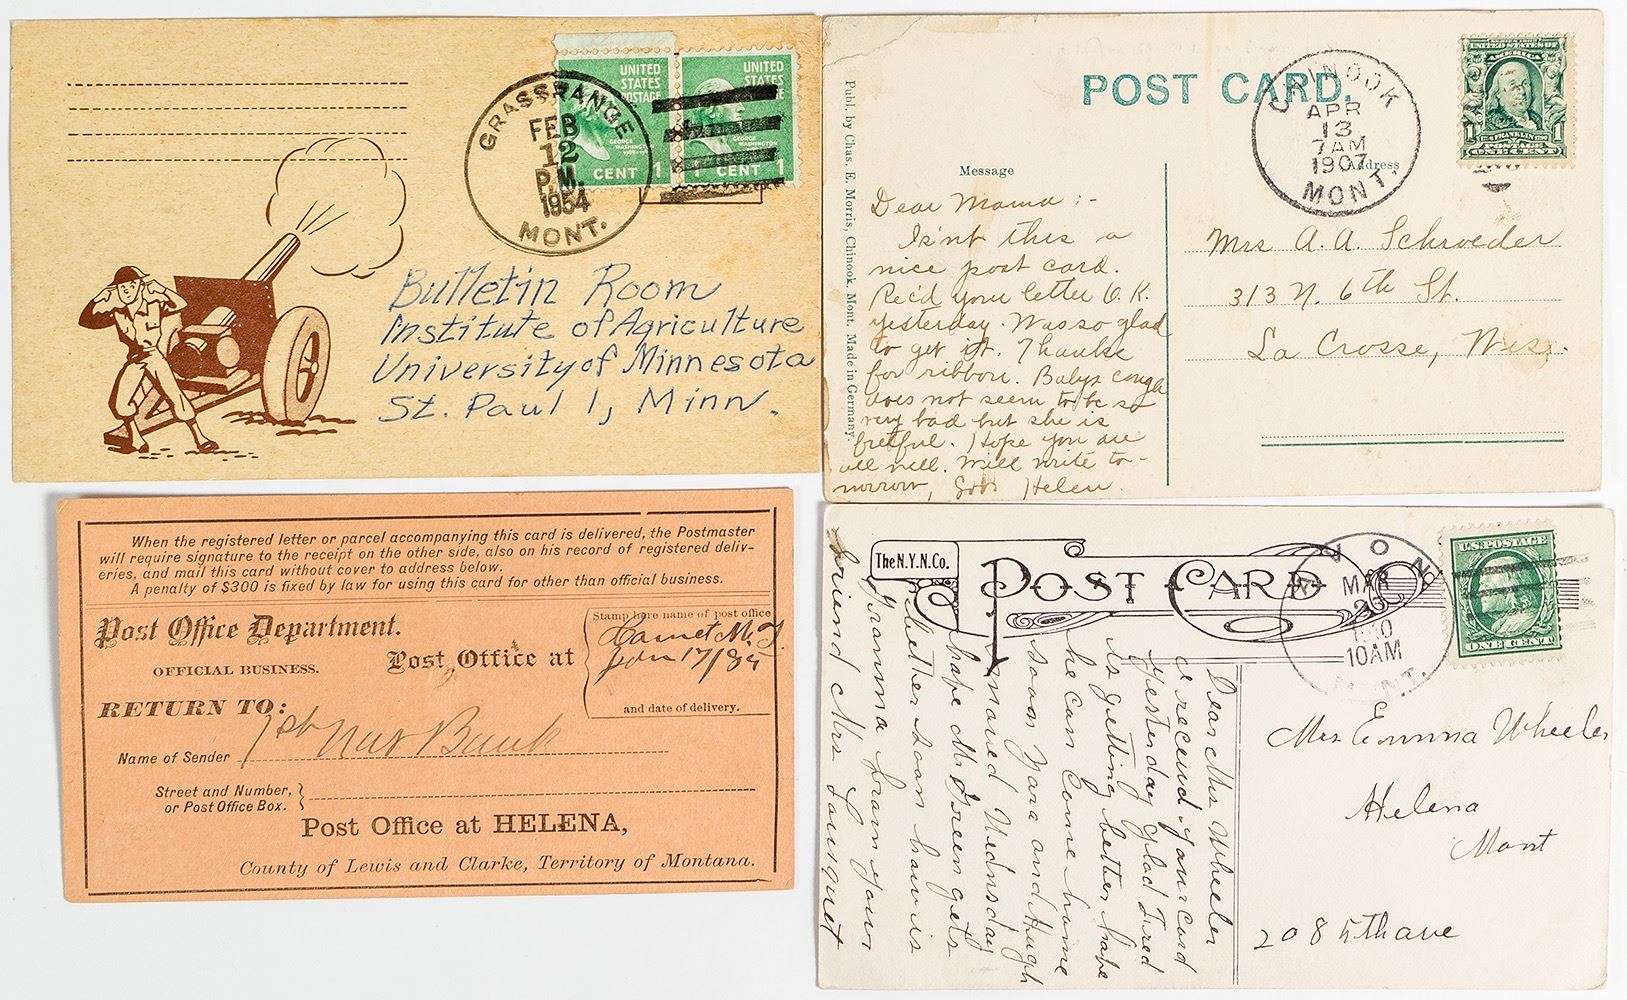 GRASSRANGE
FEB
12
P.M.
1954
MONT.
UNITED
STATES
POSTAGE
GEORGE
WASHINGTON
CENT 1
UNITED
STATES
GEORGE
WASHINGTON
1 CENT 1
Bulletin Room
Institute of Agriculture
University of Minnesota
St. Paul 1, Minn.
POST CARD.
CHINOOK
APR
13
7AM
1907
MONT.
SERIES 1902
UNITED STATES OF
AMERICA
1 FRANKLIN 1
POSTAGE
ONE CENT
Publ. by Chas. E. Morris, Chinook, Mont. Made in Germany.
Message
Address
Dear Mama :-
Is'nt this a
nice post card.
Rec'd your letter O.K.
yesterday. Was so glad
to get it. Thanks
for ribbon. Babys cough
does not seem to be so
very bad but she is
fretful. Hope you are
all well. Will write to-
morrow, Helen
Mrs A. A. Schroeder
313 N. 6th St.
La Crosse, Wis.
When the registered letter or parcel accompanying this card is delivered, the Postmaster
will require signature to the receipt on the other side, also on his record of registered deliv-
eries, and mail this card without cover to address below.
A penalty of $300 is fixed by law for using this card for other than official business.
Post Office Department.
OFFICIAL BUSINESS.
Post Office at
Stamp here name of post office
Jan 17/84
and date of delivery.
RETURN TO:
Name of Sender 1st Nat Bank
Street and Number,
or Post Office Box.
Post Office at HELENA,
County of Lewis and Clarke, Territory of Montana.
The N.Y.N. Co.
POST CARD
AVON
MAR
26
10AM
MONT.
U.S. POSTAGE
ONE CENT
Dear Mrs Wheeler
I received your card
yesterday glad Fred
is getting better hope
he can come home
soon Nora and Hugh
moved Wednesday
hope Mr Green gets
better soon how is
Gramma from your
friend Mrs
Mrs Emma Wheeler
Helena
Mont
208 5th ave